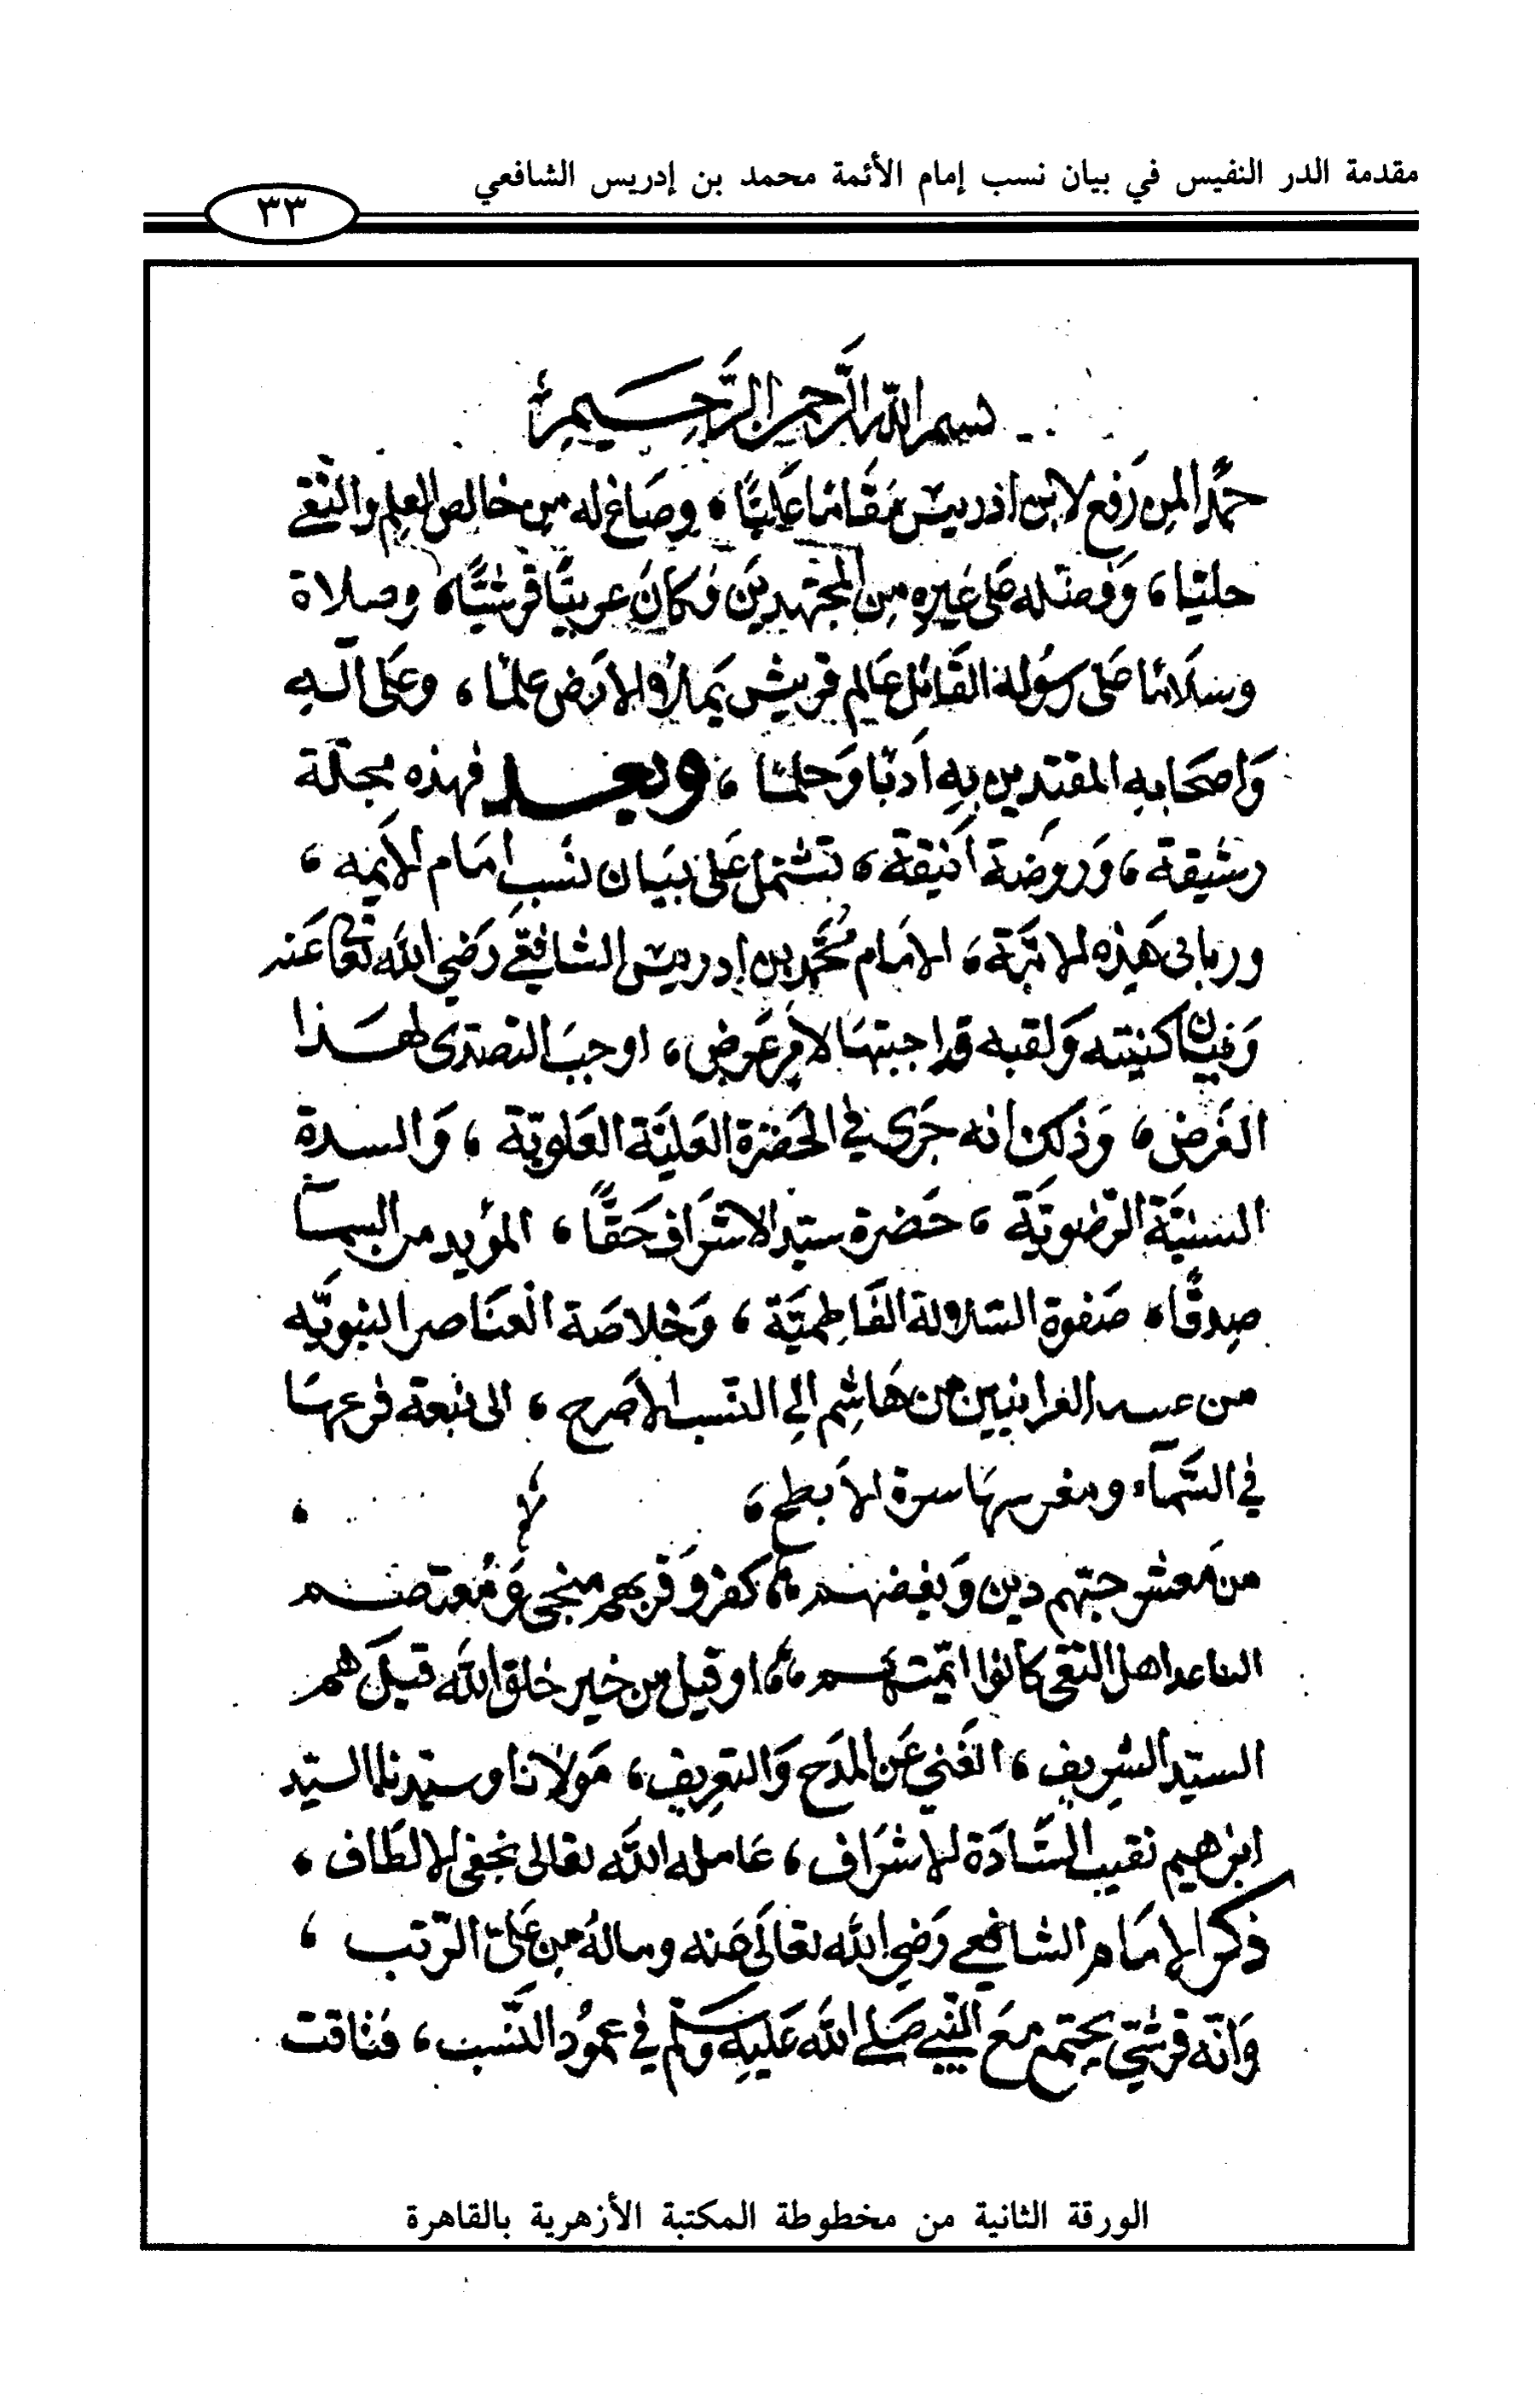 مقدمة الدر النفيس في بيان نسب إمام الأئمة محمد بن إدريس الشافعي
٣٣
بسم الله الرحمن الرحيم
حمدا لمن رفع لابن ادريس مقاما عليًا، وصاغ له من خالص العلم والتقى
حليا، وفضله على غيره من المجتهدين وكان عربيًا قرشيًا، وصلاة
وسلاما على رسوله القائل عالم قريش يملأ الارض علما، وعلى آله
واصحابه المقتدين به ادبا وحلما، وبعد فهذه مجلة
رشيقة، وروضة انيقة، تشتمل على بيان نسب امام الأئمه،
ورباني هذه الامة، الامام محمد بن ادريس الشافعي رضي الله تعالى عنه
وبيان كنيته ولقبه قد اجبتها لامر عرض، اوجب التصدى لهذا
الغرض، وذلك انه جرى في الحضرة العلية العلوية، والسدة
السنية الرضوية، حضرة سيد الاشراف حقًا، المؤيد من السما
صدقًا، صفوة السلالة الفاطمية، وخلاصة العناصر النبويه
من هاشم الى النسب الأصرح، الى نبعة فرعها
في السماء ومغرسها سرة الأبطح،
من معشر حبهم دين وبغضهم كفر وقربهم منجى ومعتصم
ان عد اهل التقى كانوا ائمتهم او قيل من خير خلق الله قيل هم
السيد الشريف، الغني عن المدح والتعريف، مولانا وسيدنا السيد
ابرهيم نقيب السادة الاشراف، عامله الله تعالى بخفي الالطاف،
ذكر الامام الشافعي رضي الله تعالى عنه وماله من على الرتب،
وانه قرشي يجتمع مع النبي صلى الله عليه وسلم في عمود النسب، فتاقت
الورقة الثانية من مخطوطة المكتبة الأزهرية بالقاهرة